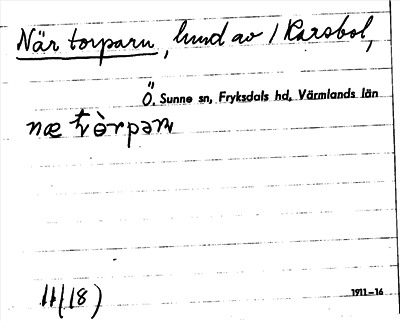 När torparn, hmd av 1 Karsbol,
Ö. Sunne sn, Fryksdals hd, Värmlands län
næ tòrparn
11(18)
1911–16